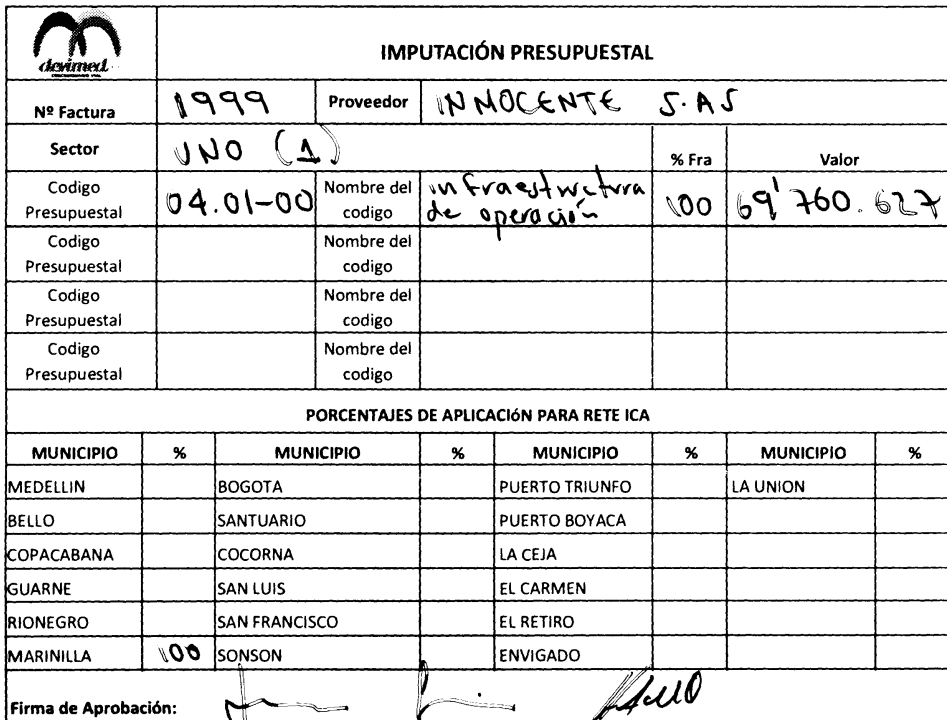 devimed
IMPUTACIÓN PRESUPUESTAL
Nº Factura 1999 Proveedor INMOCENTE S.AS
Sector UNO (1) % Fra Valor
Codigo Presupuestal 04.01-00 Nombre del codigo infraestructura de operación 100 69'760.627
Codigo Presupuestal Nombre del codigo
Codigo Presupuestal Nombre del codigo
Codigo Presupuestal Nombre del codigo
PORCENTAJES DE APLICACIÓN PARA RETE ICA
MUNICIPIO % MUNICIPIO % MUNICIPIO % MUNICIPIO %
MEDELLIN BOGOTA PUERTO TRIUNFO LA UNION
BELLO SANTUARIO PUERTO BOYACA
COPACABANA COCORNA LA CEJA
GUARNE SAN LUIS EL CARMEN
RIONEGRO SAN FRANCISCO EL RETIRO
MARINILLA 100 SONSON ENVIGADO
Firma de Aprobación: